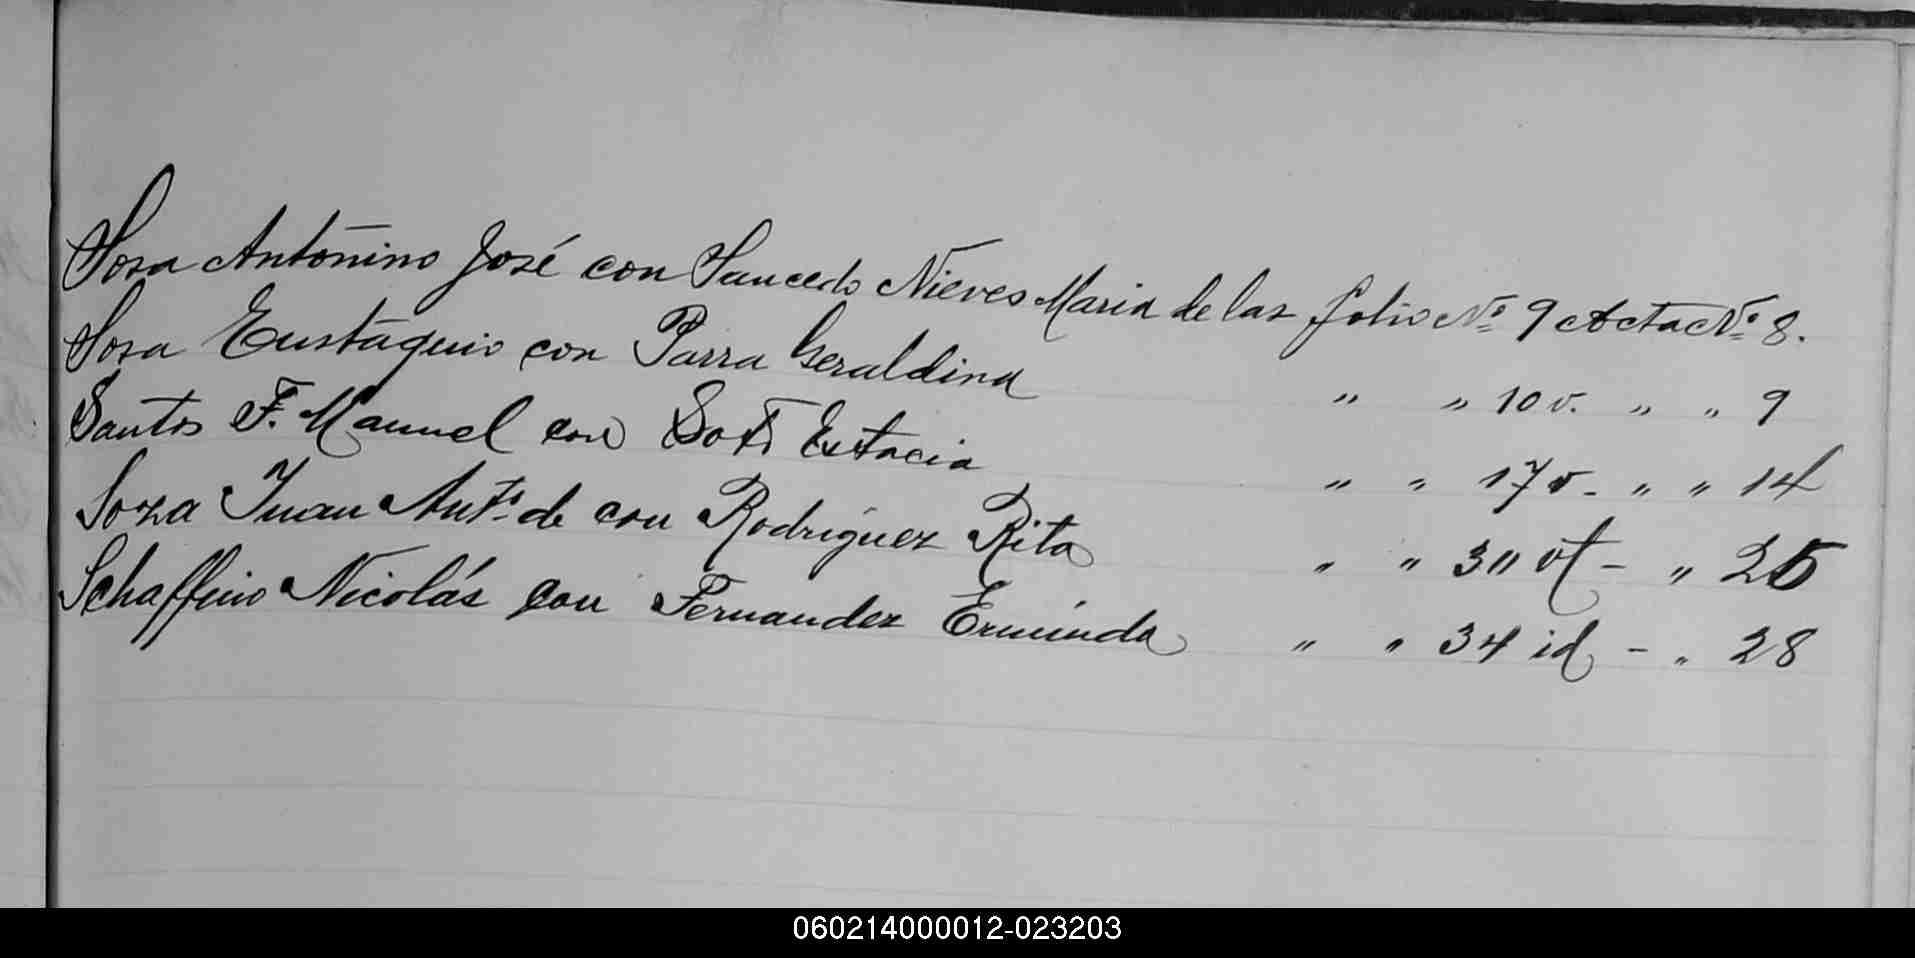 Sosa Antonino José con Saucedo Nieves Maria de las folio Nº 9 Acta Nº 8.
Sosa Eustaquio con Parra Geraldina " " 10 v. " " 9
Santos F. Manuel con Estacia " " 17 v. " " 14
Soza Juan Antº de con Rodriguez Rita " " 30 vt - " 25
Schaffino Nicolás con Fernandez Erminda " " 34 id - " 28
060214000012-023203